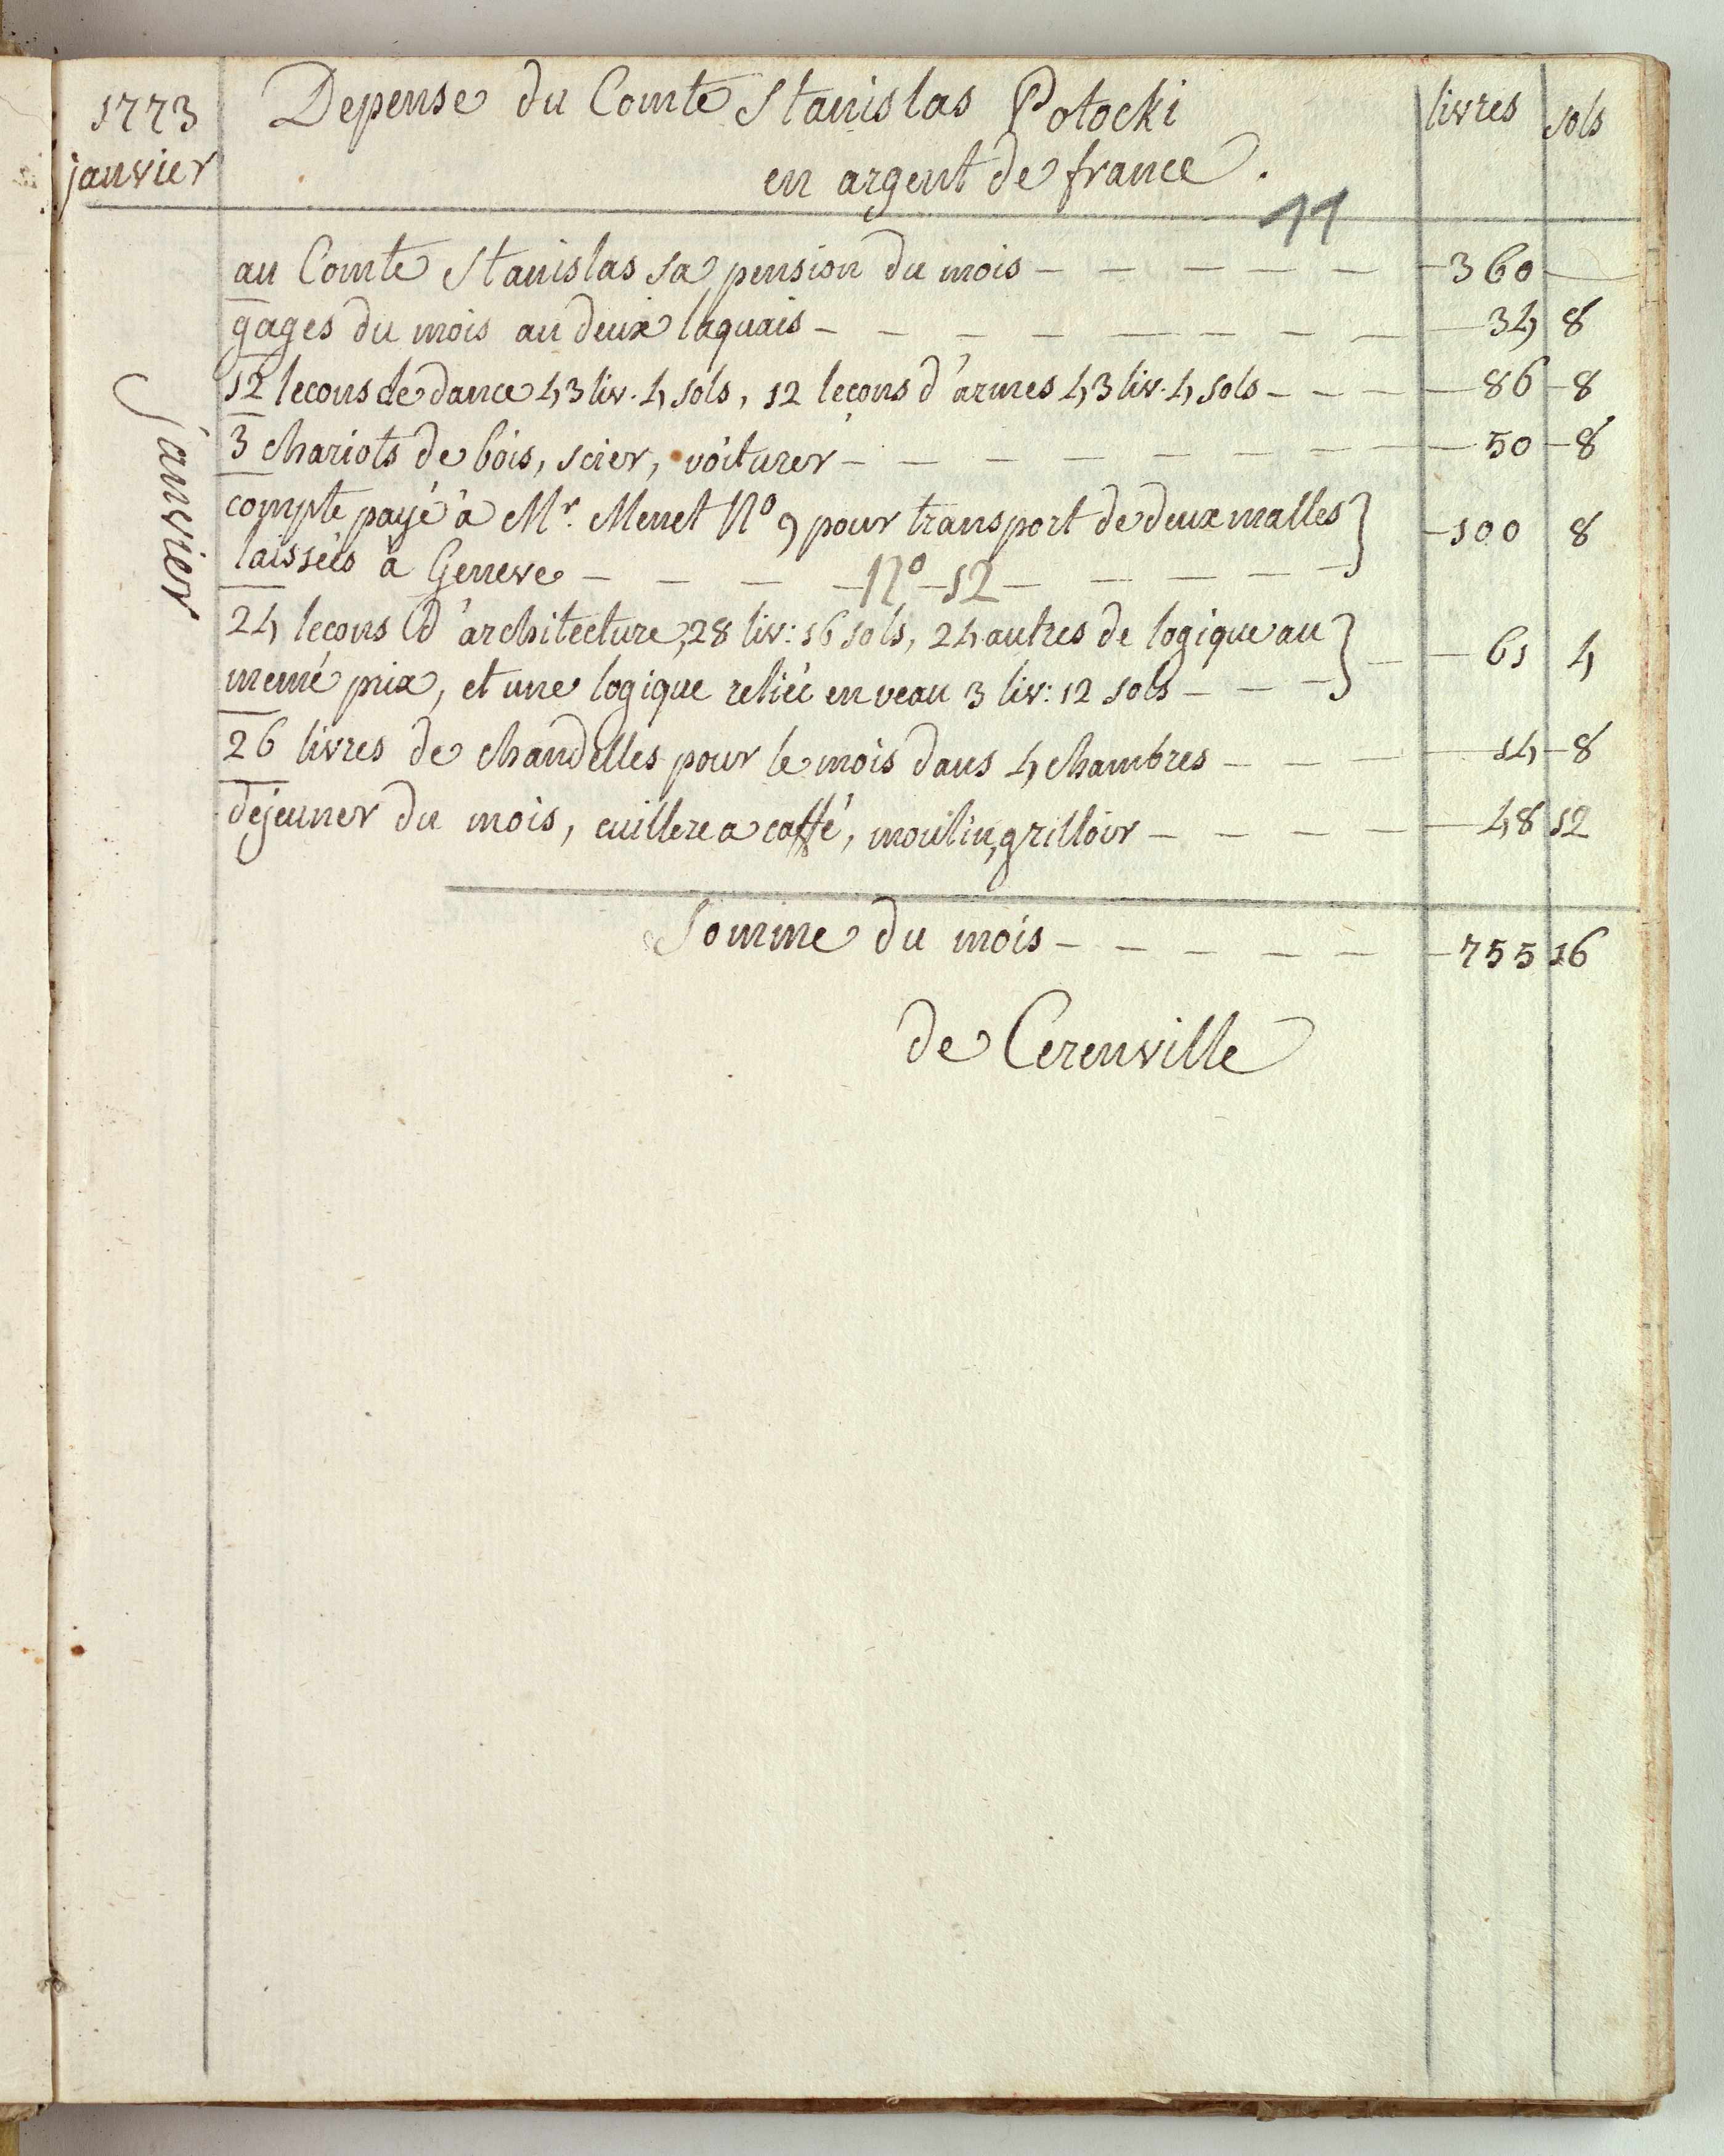 1773
janvier
Depense du Comte Stanislas Potocki
en argent de france.
livres sols
11
au Comte Stanislas sa pension du mois - - - - - - 360
gages du mois au deux laquais - - - - - - - - 34 8
12 lecons de dance 43 liv. 4 sols, 12 leçons d'armes 43 liv. 4 sols - - - 86 8
3 chariots de bois, scier, voiturer - - - - - - - - 50 8
compte payé à Mr. Menet No 9 pour transport de deux malles } 100 8
laissées à Geneve - - - No 12 - - - - -
24 leçons d'architecture, 28 liv: 16 sols, 24 autres de logique au } 61 4
memé prix, et une logique reliée en veau 3 liv: 12 sols - - -
26 livres de chandelles pour le mois dans 4 chambres - - - 14 8
dejeuner du mois, cuillere a caffé, moulin, grilloir - - - - 48 12
Somme du mois - - - - - - 755 16
de Cerenville
Janvier